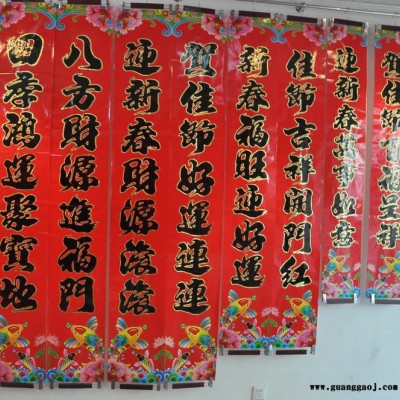 賀佳節福呈祥
迎新春萬事如意
佳節吉祥開門紅
新春福旺迎好運
賀佳節好運連連
迎新春財源滾滾
八方財源進福門
四季鴻運聚寶地
www.guanggaoj.com